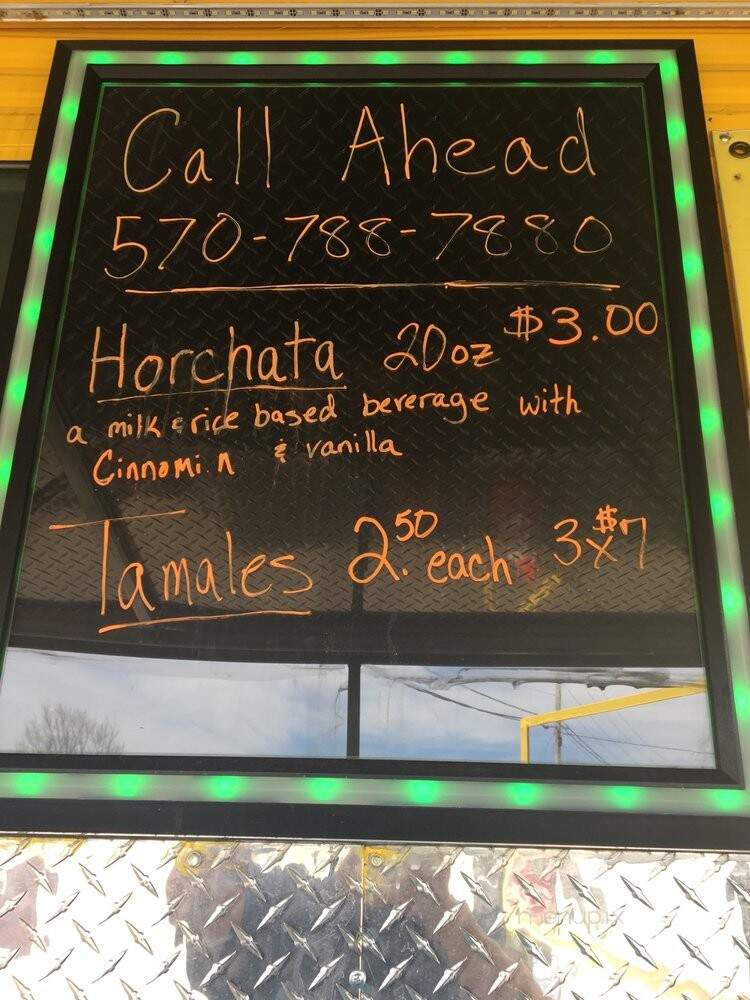 Call Ahead
570-788-7880
Horchata 20oz $3.00
a milk & rice based beverage with
Cinnomi.n & vanilla
Tamales 2.50 each 3x$7
menupix